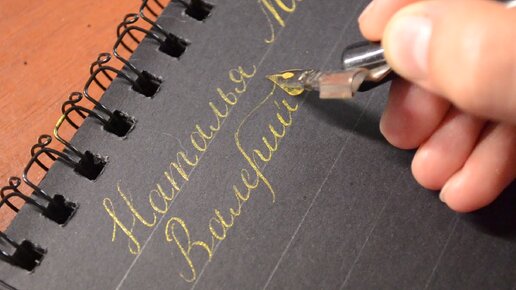 Наталья
Валерий